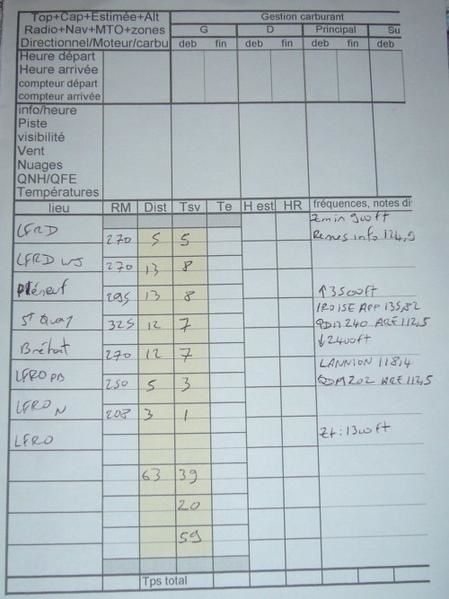 Top+Cap+Estimée+Alt Gestion carburant
Radio+Nav+MTO+zones G D Principal Su
Directionnel/Moteur/carbu deb fin deb fin deb fin deb
Heure départ
Heure arrivée
compteur départ
compteur arrivée
info/heure
Piste
visibilité
Vent
Nuages
QNH/QFE
Températures
lieu RM Dist Tsv Te H est HR fréquences, notes di
zmin 900ft
LFRD Rennes info 124,9
270 5 5
LFRD WJ
270 13 8
Pléneuf
295 13 8 ↑3500ft
St Quay IROISE APP 135,82
325 12 7 QDM 240 ARE 112,5
Bréhat ↓2400ft
270 12 7 LANNION 118,4
LFRO PB
250 5 3 QDM 202 ARE 112,5
LFRO N
208 3 1
LFRO Zt: 1300ft
63 39
20
59
Tps total